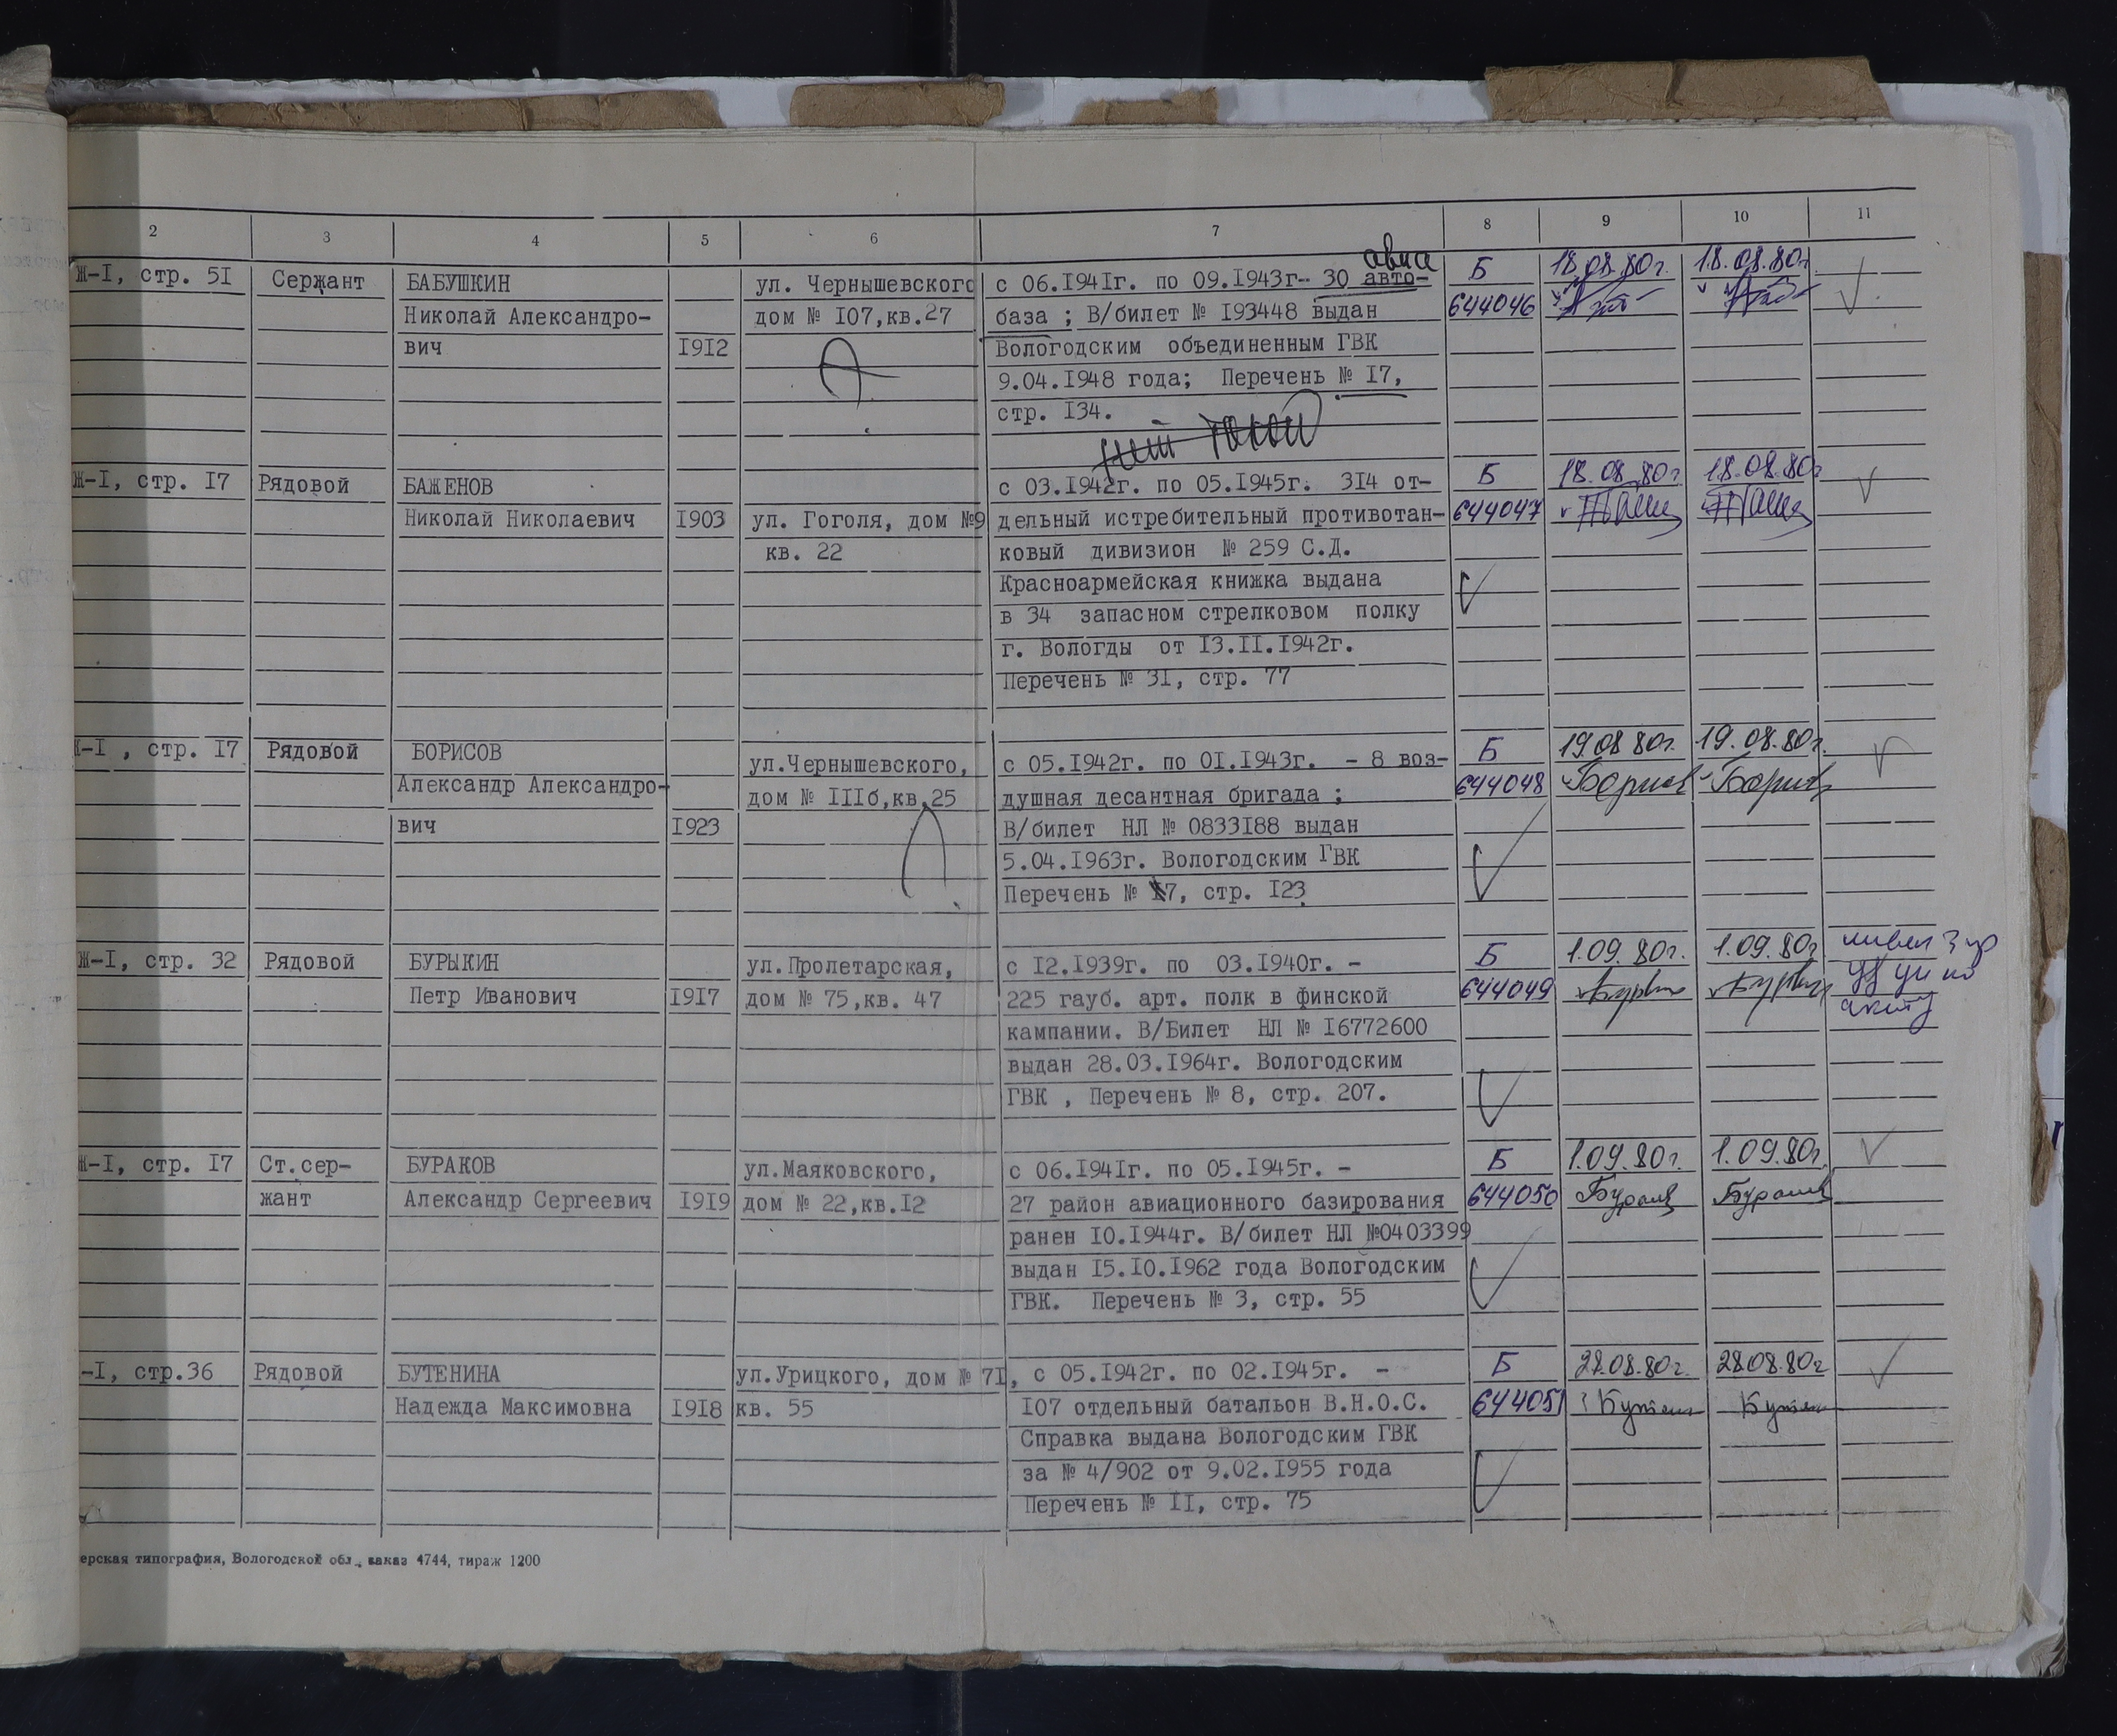 2 3 4 5 6 7 8 9 10 11
Ж-I, стр. 5I Сержант БАБУШКИН ул. Чернышевского с 06.I94Iг. по 09.I943г- 30 авто- авиа Б 18.08.80г. 18.08.80г.
Николай Александро- дом № I07,кв.27 база ; В/билет № I93448 выдан 644046
вич I9I2 Вологодским объединенным ГВК
9.04.I948 года; Перечень № I7,
стр. I34.
Ж-I, стр. I7 Рядовой БАЖЕНОВ с 03.I942г. по 05.I945г. 3I4 от- Б 18.08.80г 18.08.80г
Николай Николаевич I903 ул. Гоголя, дом №9 дельный истребительный противотан- 644047
кв. 22 ковый дивизион № 259 С.Д.
Красноармейская книжка выдана
в 34 запасном стрелковом полку
г. Вологды от I3.II.I942г.
Перечень № 3I, стр. 77
Ж-I , стр. I7 Рядовой БОРИСОВ ул.Чернышевского, с 05.I942г. по 0I.I943г. - 8 воз- Б 19.08 80г. 19.08.80г.
Александр Александро- дом № IIIб,кв.25 душная десантная бригада ; 644048 Борисов Борисов
вич I923 В/билет НЛ № 0833I88 выдан
5.04.I963г. Вологодским ГВК
Перечень № 7, стр. I23
Ж-I, стр. 32 Рядовой БУРЫКИН ул.Пролетарская, с I2.I939г. по 03.I940г. - Б 1.09.80г. 1.09.80г
Петр Иванович I9I7 дом № 75,кв. 47 225 гауб. арт. полк в финской 644049
кампании. В/Билет НЛ № I6772600
выдан 28.03.I964г. Вологодским
ГВК , Перечень № 8, стр. 207.
Ж-I, стр. I7 Ст.сер- БУРАКОВ ул.Маяковского, с 06.I94Iг. по 05.I945г. - Б 1.09.80г. 1.09.80г.
жант Александр Сергеевич I9I9 дом № 22,кв.I2 27 район авиационного базирования 644050 Бураков Бураков
ранен I0.I944г. В/билет НЛ №0403399
выдан I5.I0.I962 года Вологодским
ГВК. Перечень № 3, стр. 55
-I, стр.36 Рядовой БУТЕНИНА ул.Урицкого, дом № 7I, с 05.I942г. по 02.I945г. - Б 28.08.80г. 28.08.80г
Надежда Максимовна I9I8 кв. 55 I07 отдельный батальон В.Н.О.С. 644051
Справка выдана Вологодским ГВК
за № 4/902 от 9.02.I955 года
Перечень № II, стр. 75
ерская типография, Вологодской обл., заказ 4744, тираж 1200